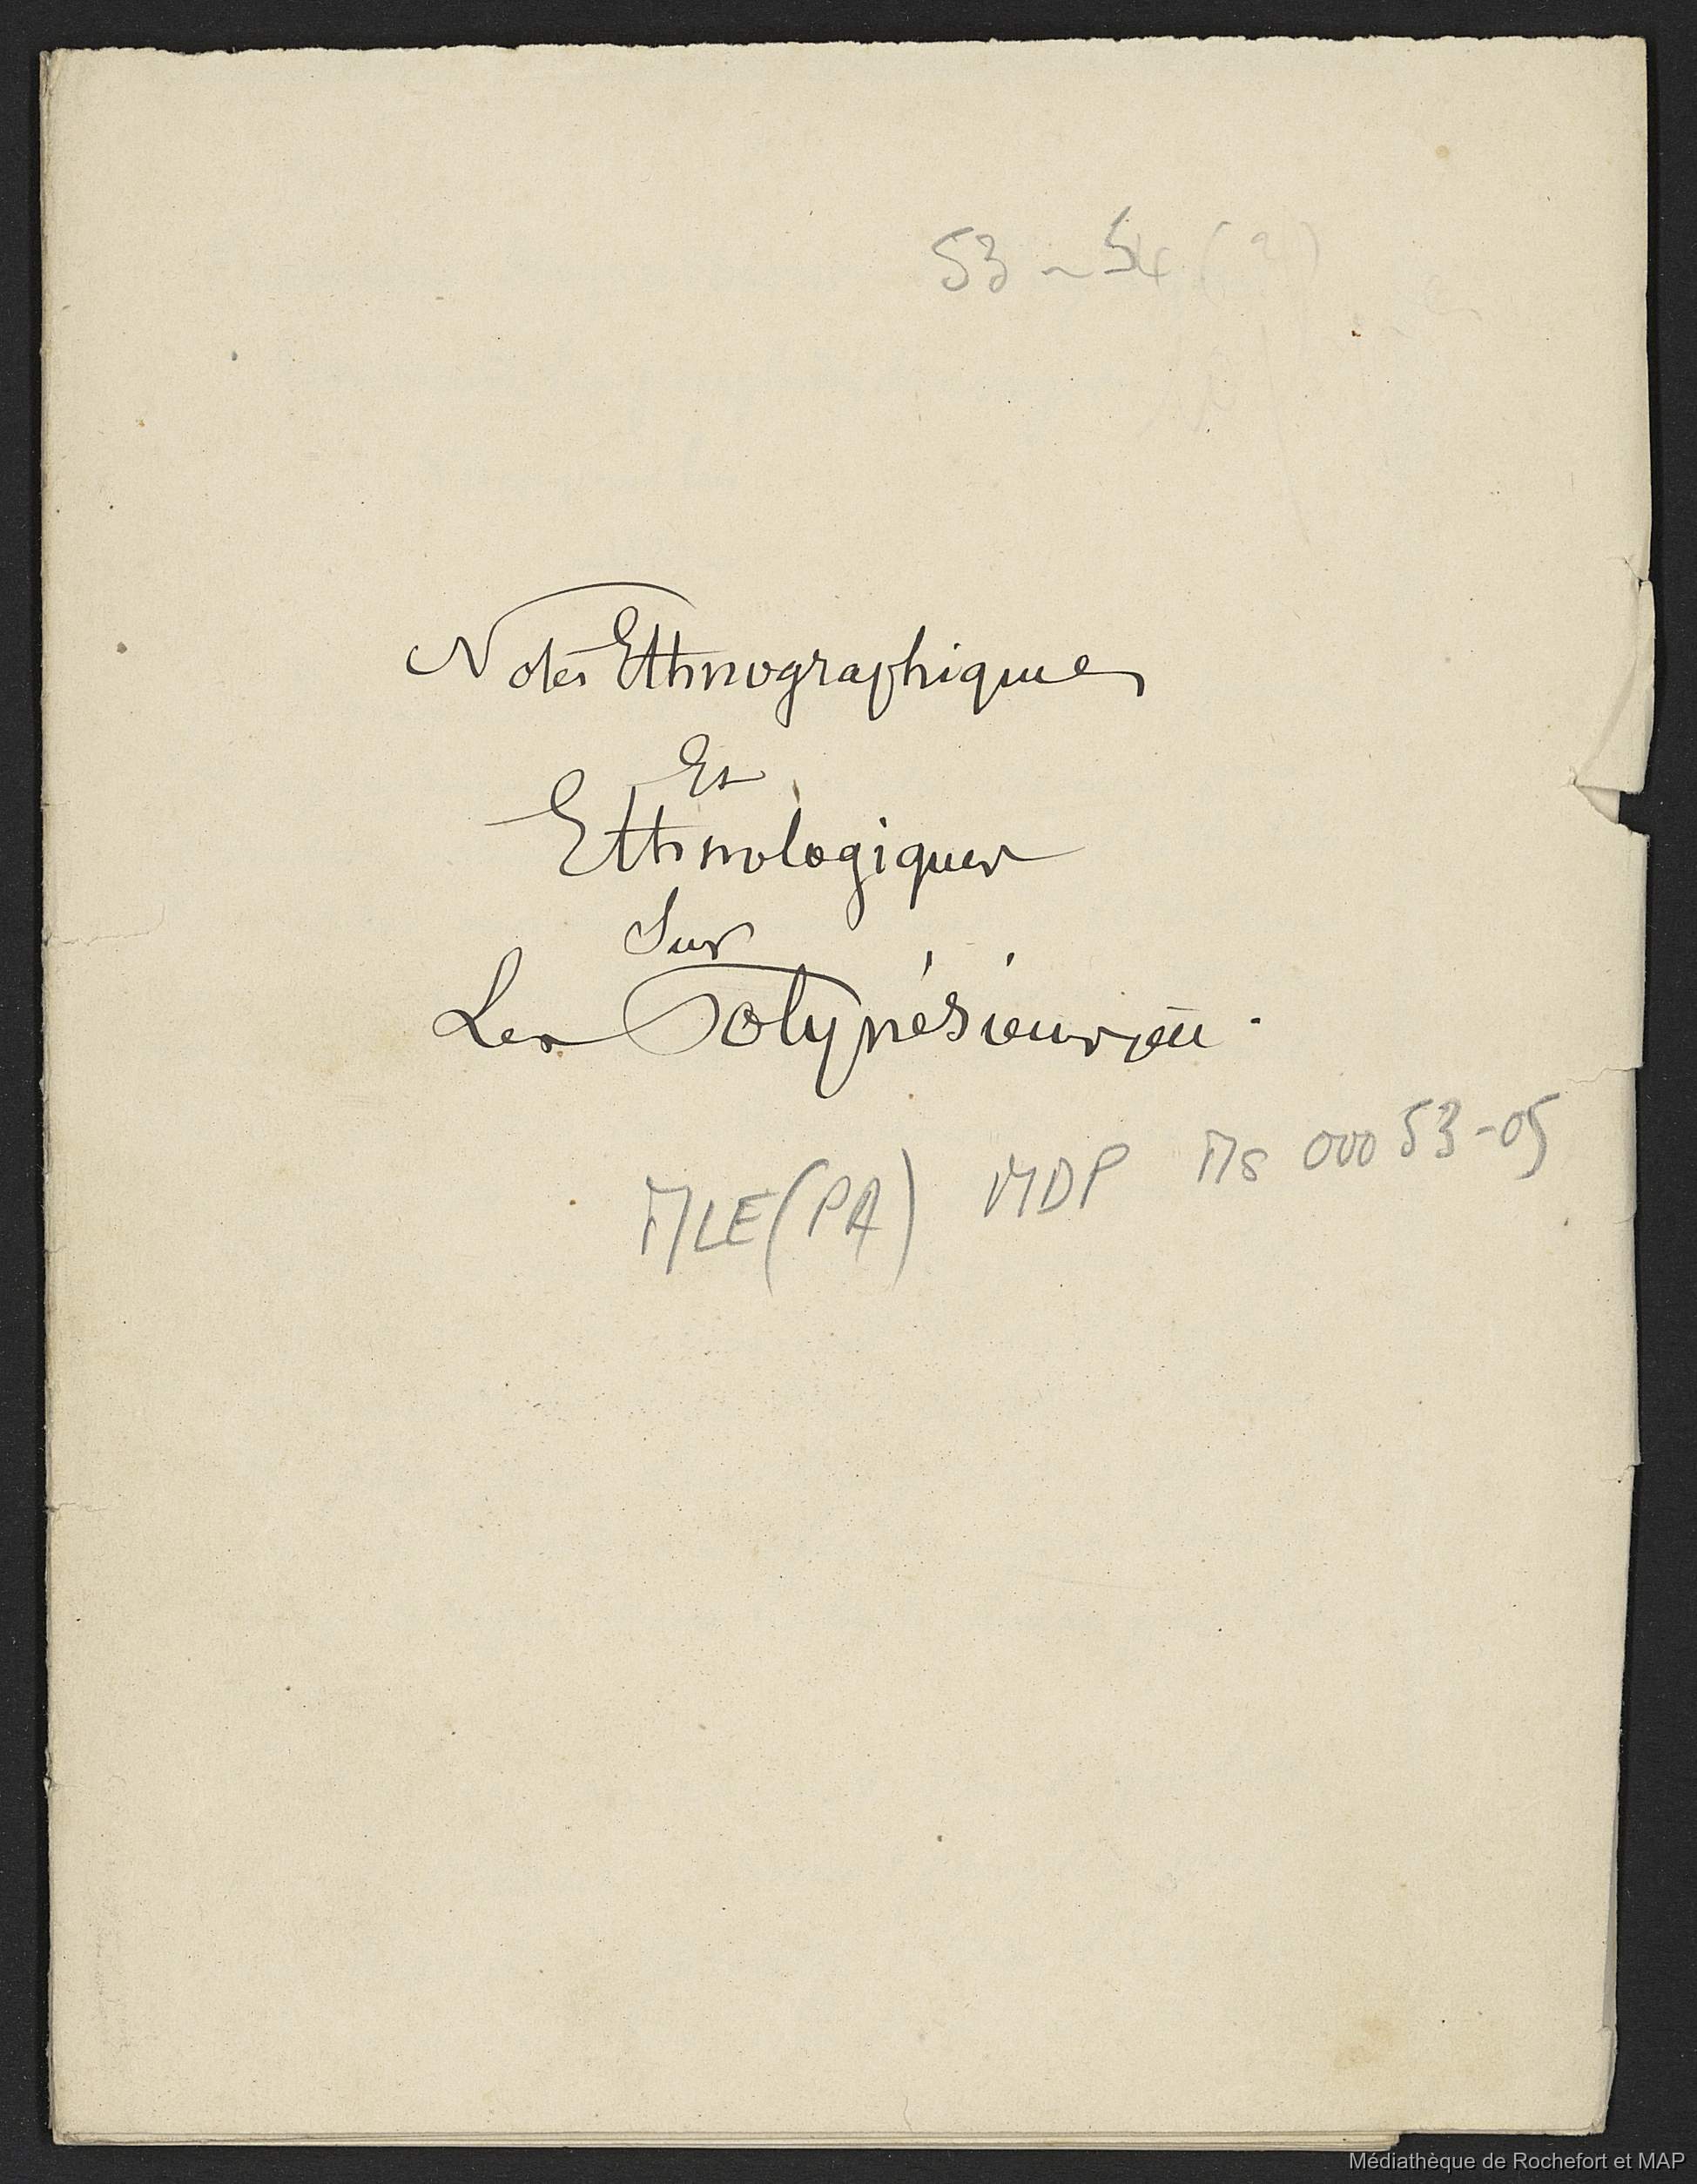 53 - 54 (2)
Notes Ethnographiques
Et
Ethnologiques
Sur
Les Polynésiens
MLE(PA) MDP Ms 00053-05
Médiathèque de Rochefort et MAP